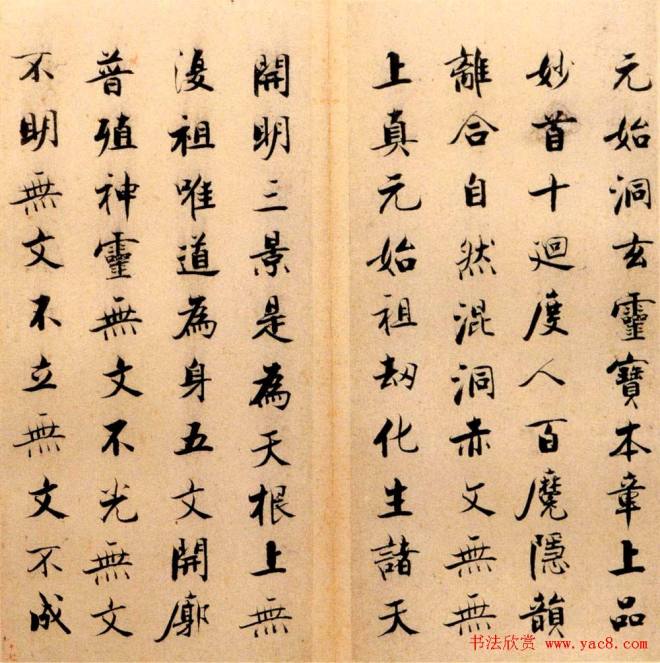 元始洞玄靈寶本章上品
妙首十廻度人百魔隱韻
離合自然混洞赤文無無
上真元始祖劫化生諸天
開明三景是為天根上無
復祖唯道為身五文開廓
普殖神靈無文不光無文
不明無文不立無文不成
书法欣赏 www.yac8.com